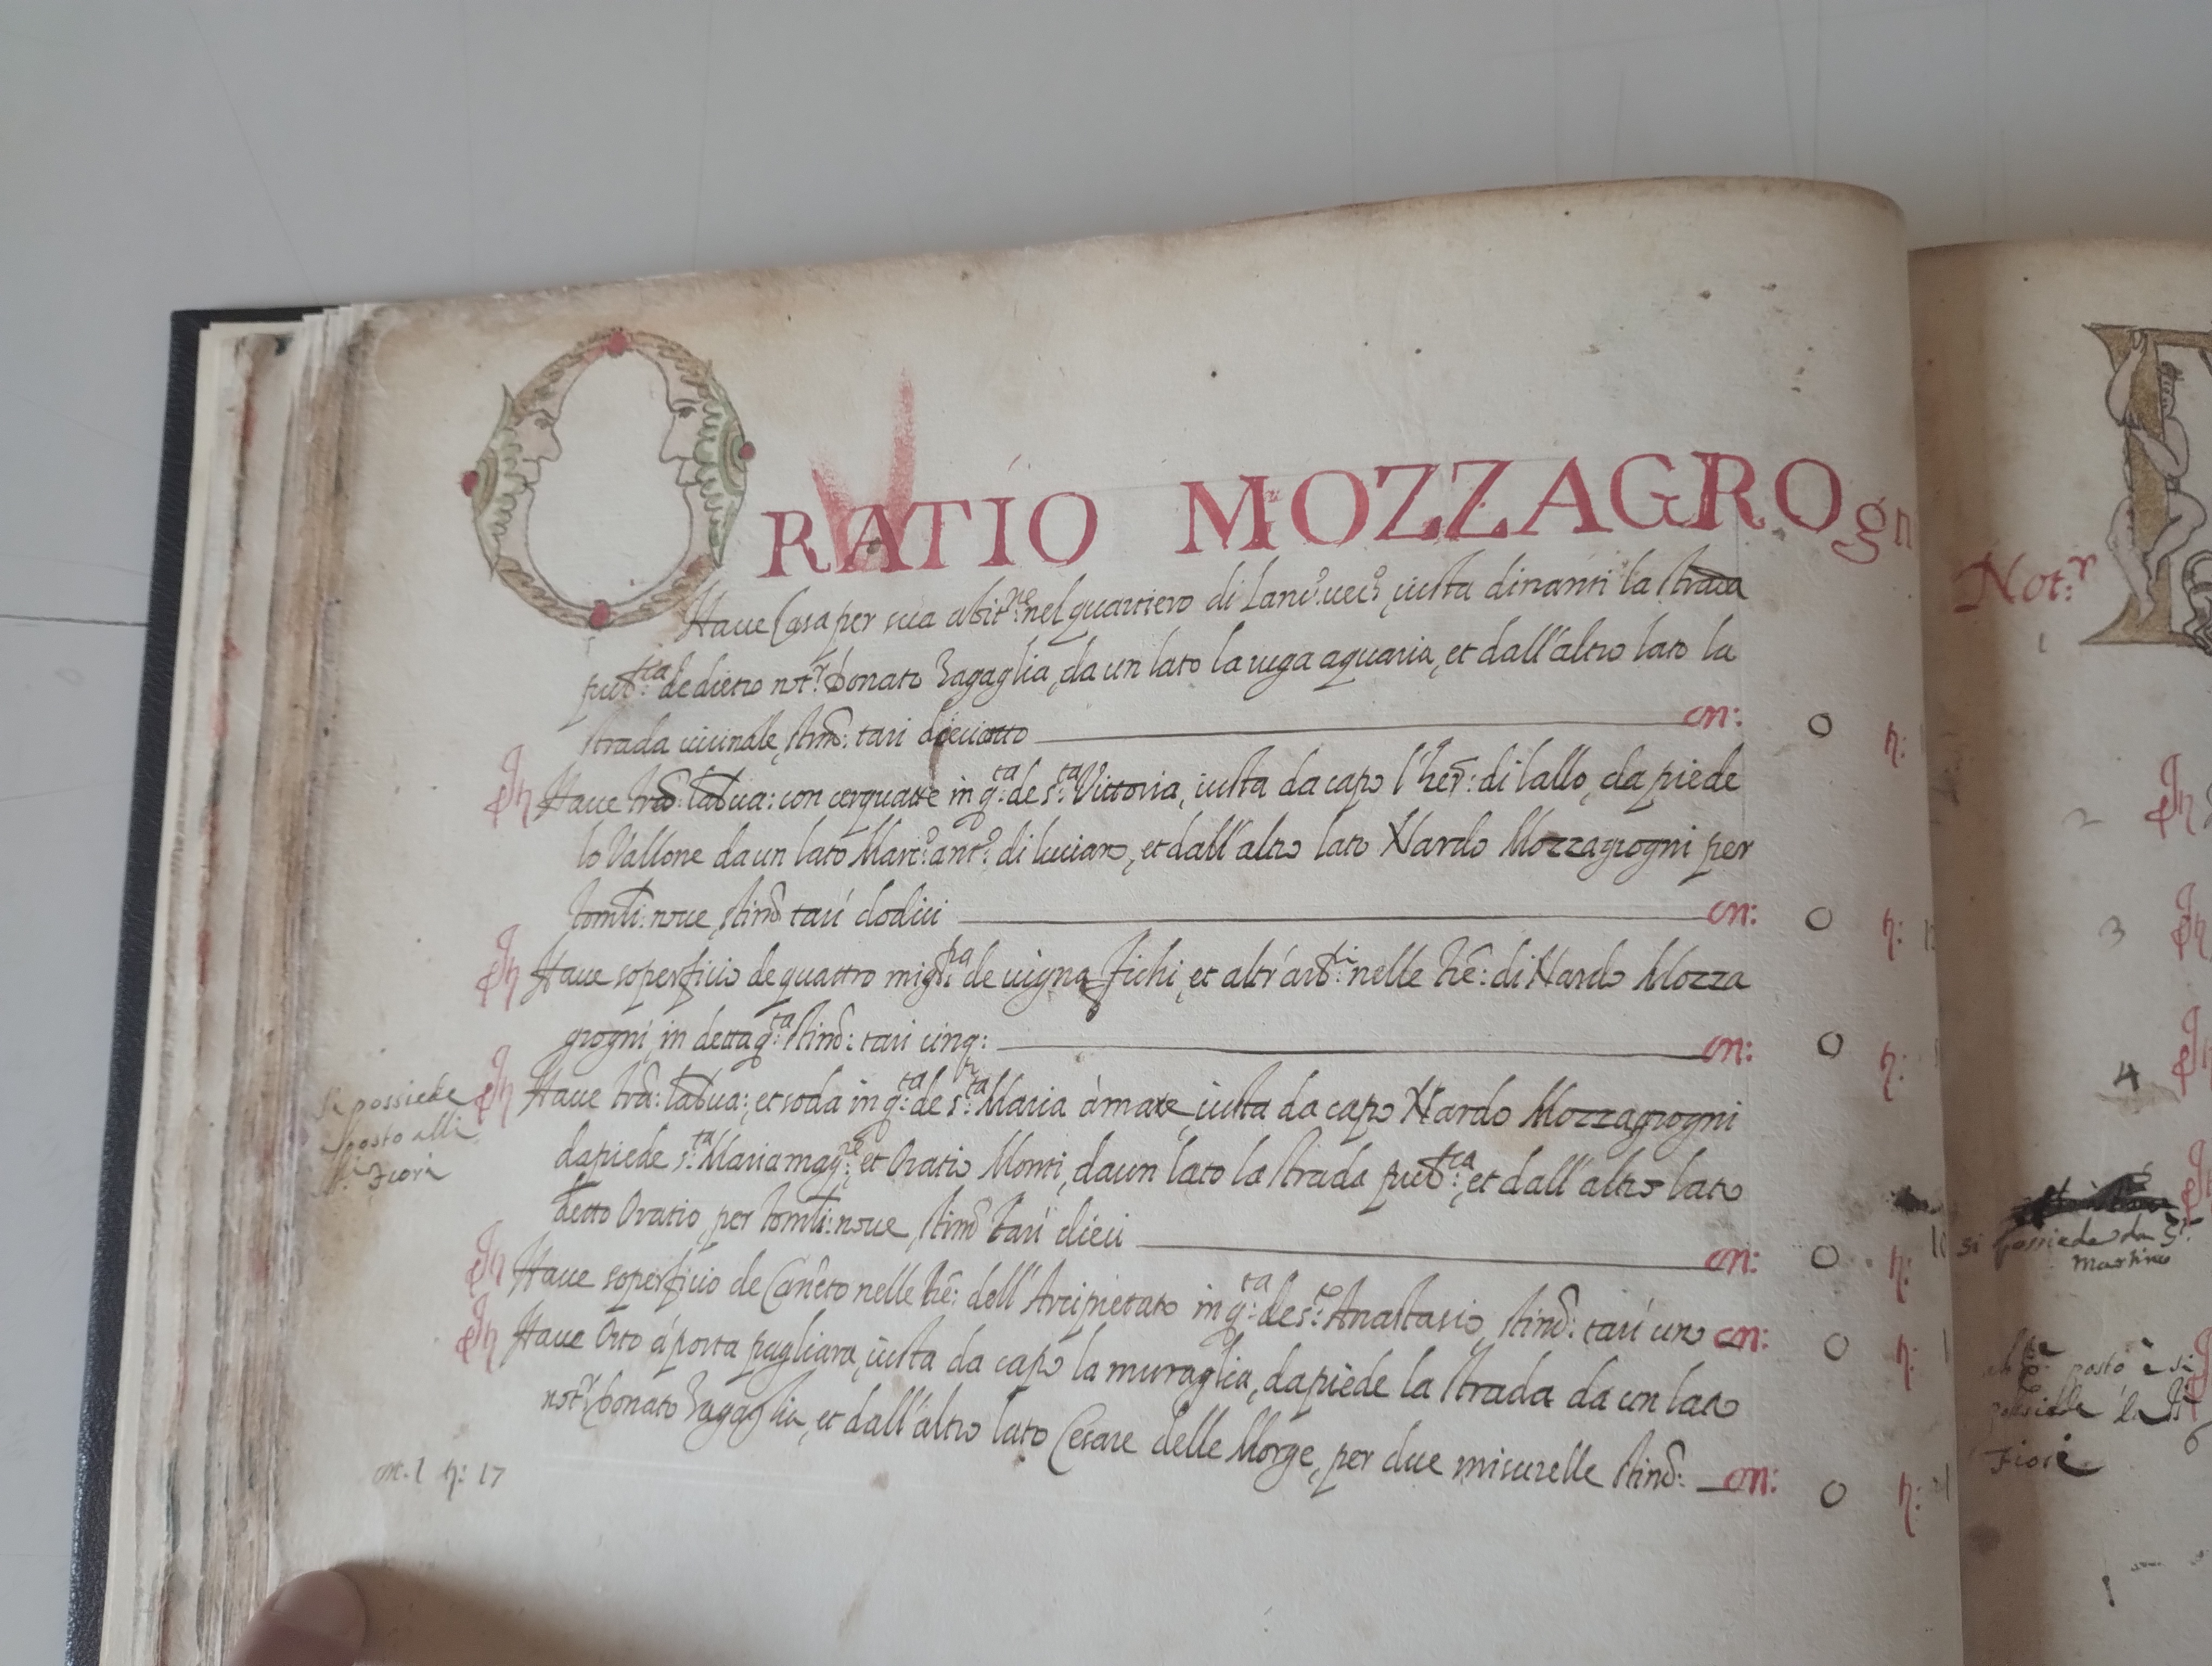 ORATIO MOZZAGROgn
Haue Casa per sua abit.ne nel quartiero di Lanc.o uec.o, iusta dinanti la strada
pub.ca de dietro not.r Donato Zagaglia, da un lato la ruga aquaria, et dall'altro lato la
strada uicinale, stim: tari dieciotto on: 0 tt:
In Haue tra: lab.ua: con cerquane in q.ta de s.ta Vittoria, iusta da capo l'her: di lallo, da piede
lo Vallone da un lato Marc.o ant.o di luciano, et dall'altro lato Nardo Mozzagrogni per
tomli: noue, stim tari dodici on: 0 tt: 12
In Haue soperficio de quattro migl.ra de uigna, fichi, et altr'arb.ri nelle tre: di Nardo Mozza
grogni, in detta q.ta stim: tari cinq: on: 0 tt:
In Haue tra: lab.ua:, et soda in q.ta de s.ta Maria à mare, iusta da capo Nardo Mozzagrogni
da piede s.ta Maria mag.re, et Oratio Monti, da un lato la strada pub.ca, et dall'altro lato
detto Oratio, per tomli: noue, stim tari dieci on: 0 tt: 10
In Haue soperficio de Canneto nelle tre: dell'Arcipretato in q.ta de s.to Anastasio, stim: tari uno on: 0 tt: 1
In Haue Orto à porta pagliara, iusta da capo la muraglia, da piede la strada da un lato
not.r Donato Zagaglia, et dall'altro lato Cesare delle Morge, per due misurelle stim: on: 0 tt:
Si possiede
posto alli
Fiori
on. 1 tt: 17
Not.r
2
3
4
si possiede da S.
Martino
posto è si
possiede
Fiore